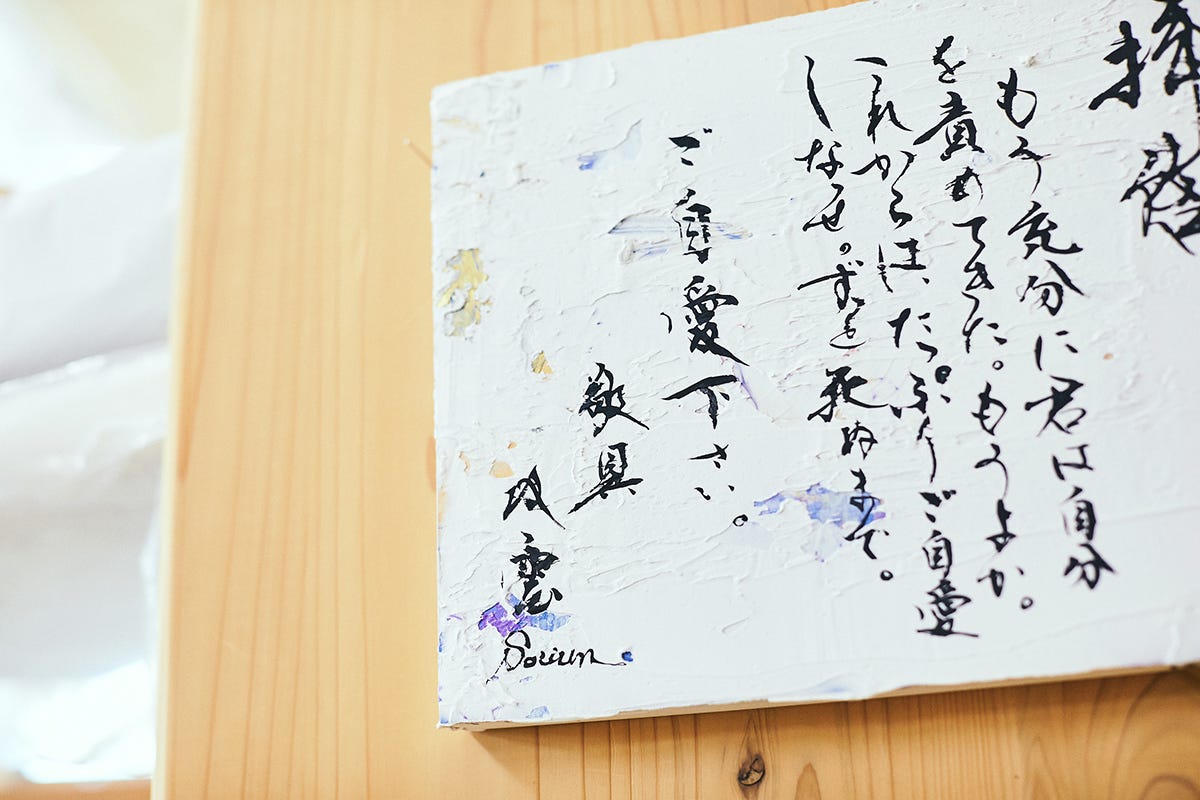 拝啓
もう充分に君は自分
を責めてきた。もうよか。
これからは、たっぷりご自愛
しなせ。ずっと死ぬまで。
ご自愛下さい。
敬具
双雲
Souun